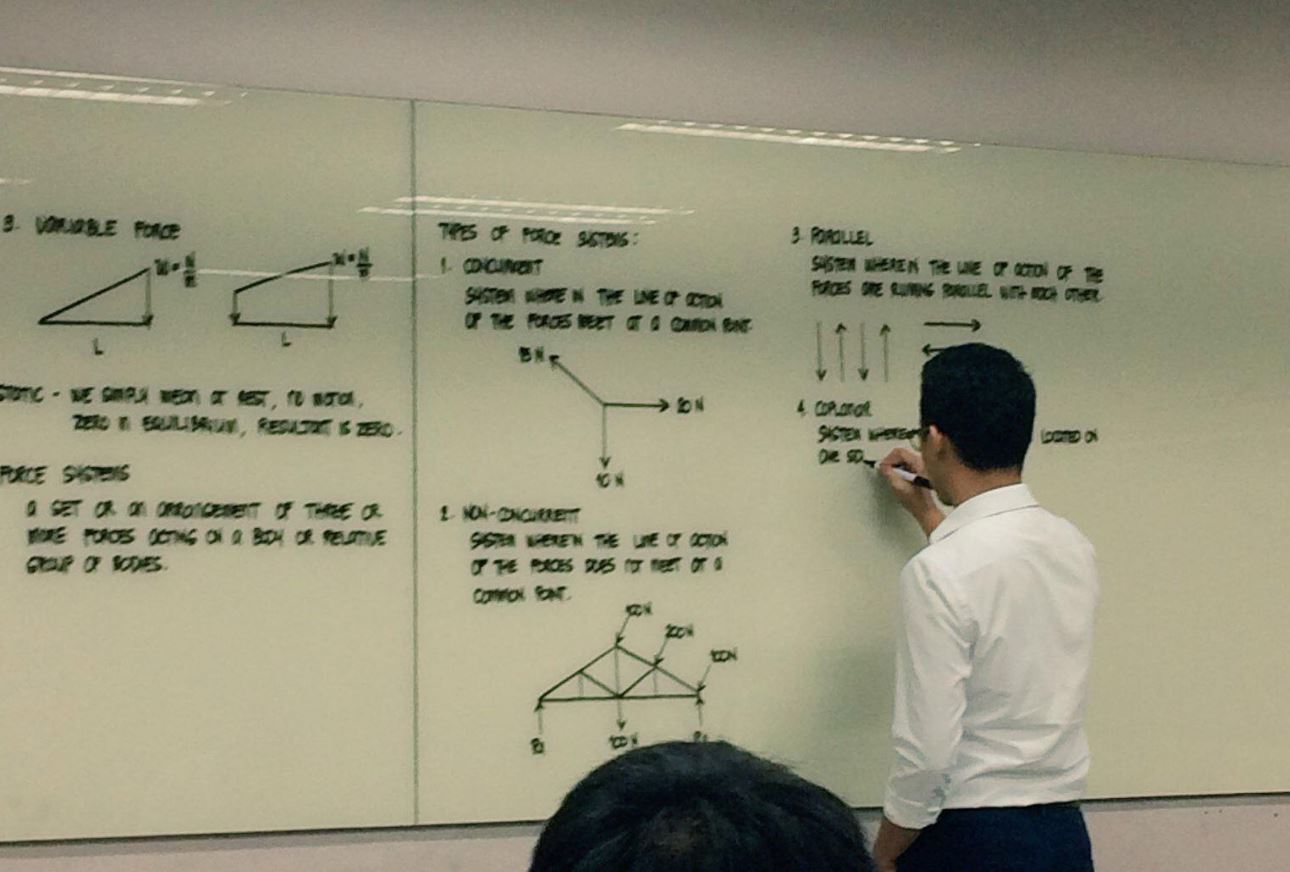 3. VARIABLE FORCE
W = N/m
W = N/m
L
L
STATIC - WE SIMPLY MEAN AT REST, NO MOTION,
ZERO IN EQUILIBRIUM, RESULTANT IS ZERO.
FORCE SYSTEMS
A SET OR AN ARRANGEMENT OF THREE OR
MORE FORCES ACTING ON A BODY OR RELATIVE
GROUP OF BODIES.
TYPES OF FORCE SYSTEMS:
1. CONCURRENT
SYSTEM WHERE IN THE LINE OF ACTION
OF THE FORCES MEET AT A COMMON POINT.
15 N
20 N
10 N
2. NON-CONCURRENT
SYSTEM WHEREIN THE LINE OF ACTION
OF THE FORCES DOES NOT MEET AT A
COMMON POINT.
100N
200N
100N
R1
100 N
3. PARALLEL
SYSTEM WHEREIN THE LINE OF ACTION OF THE
FORCES ARE RUNING PARALLEL WITH EACH OTHER.
4. COPLANAR
SYSTEM WHERE LOCATED ON
ONE